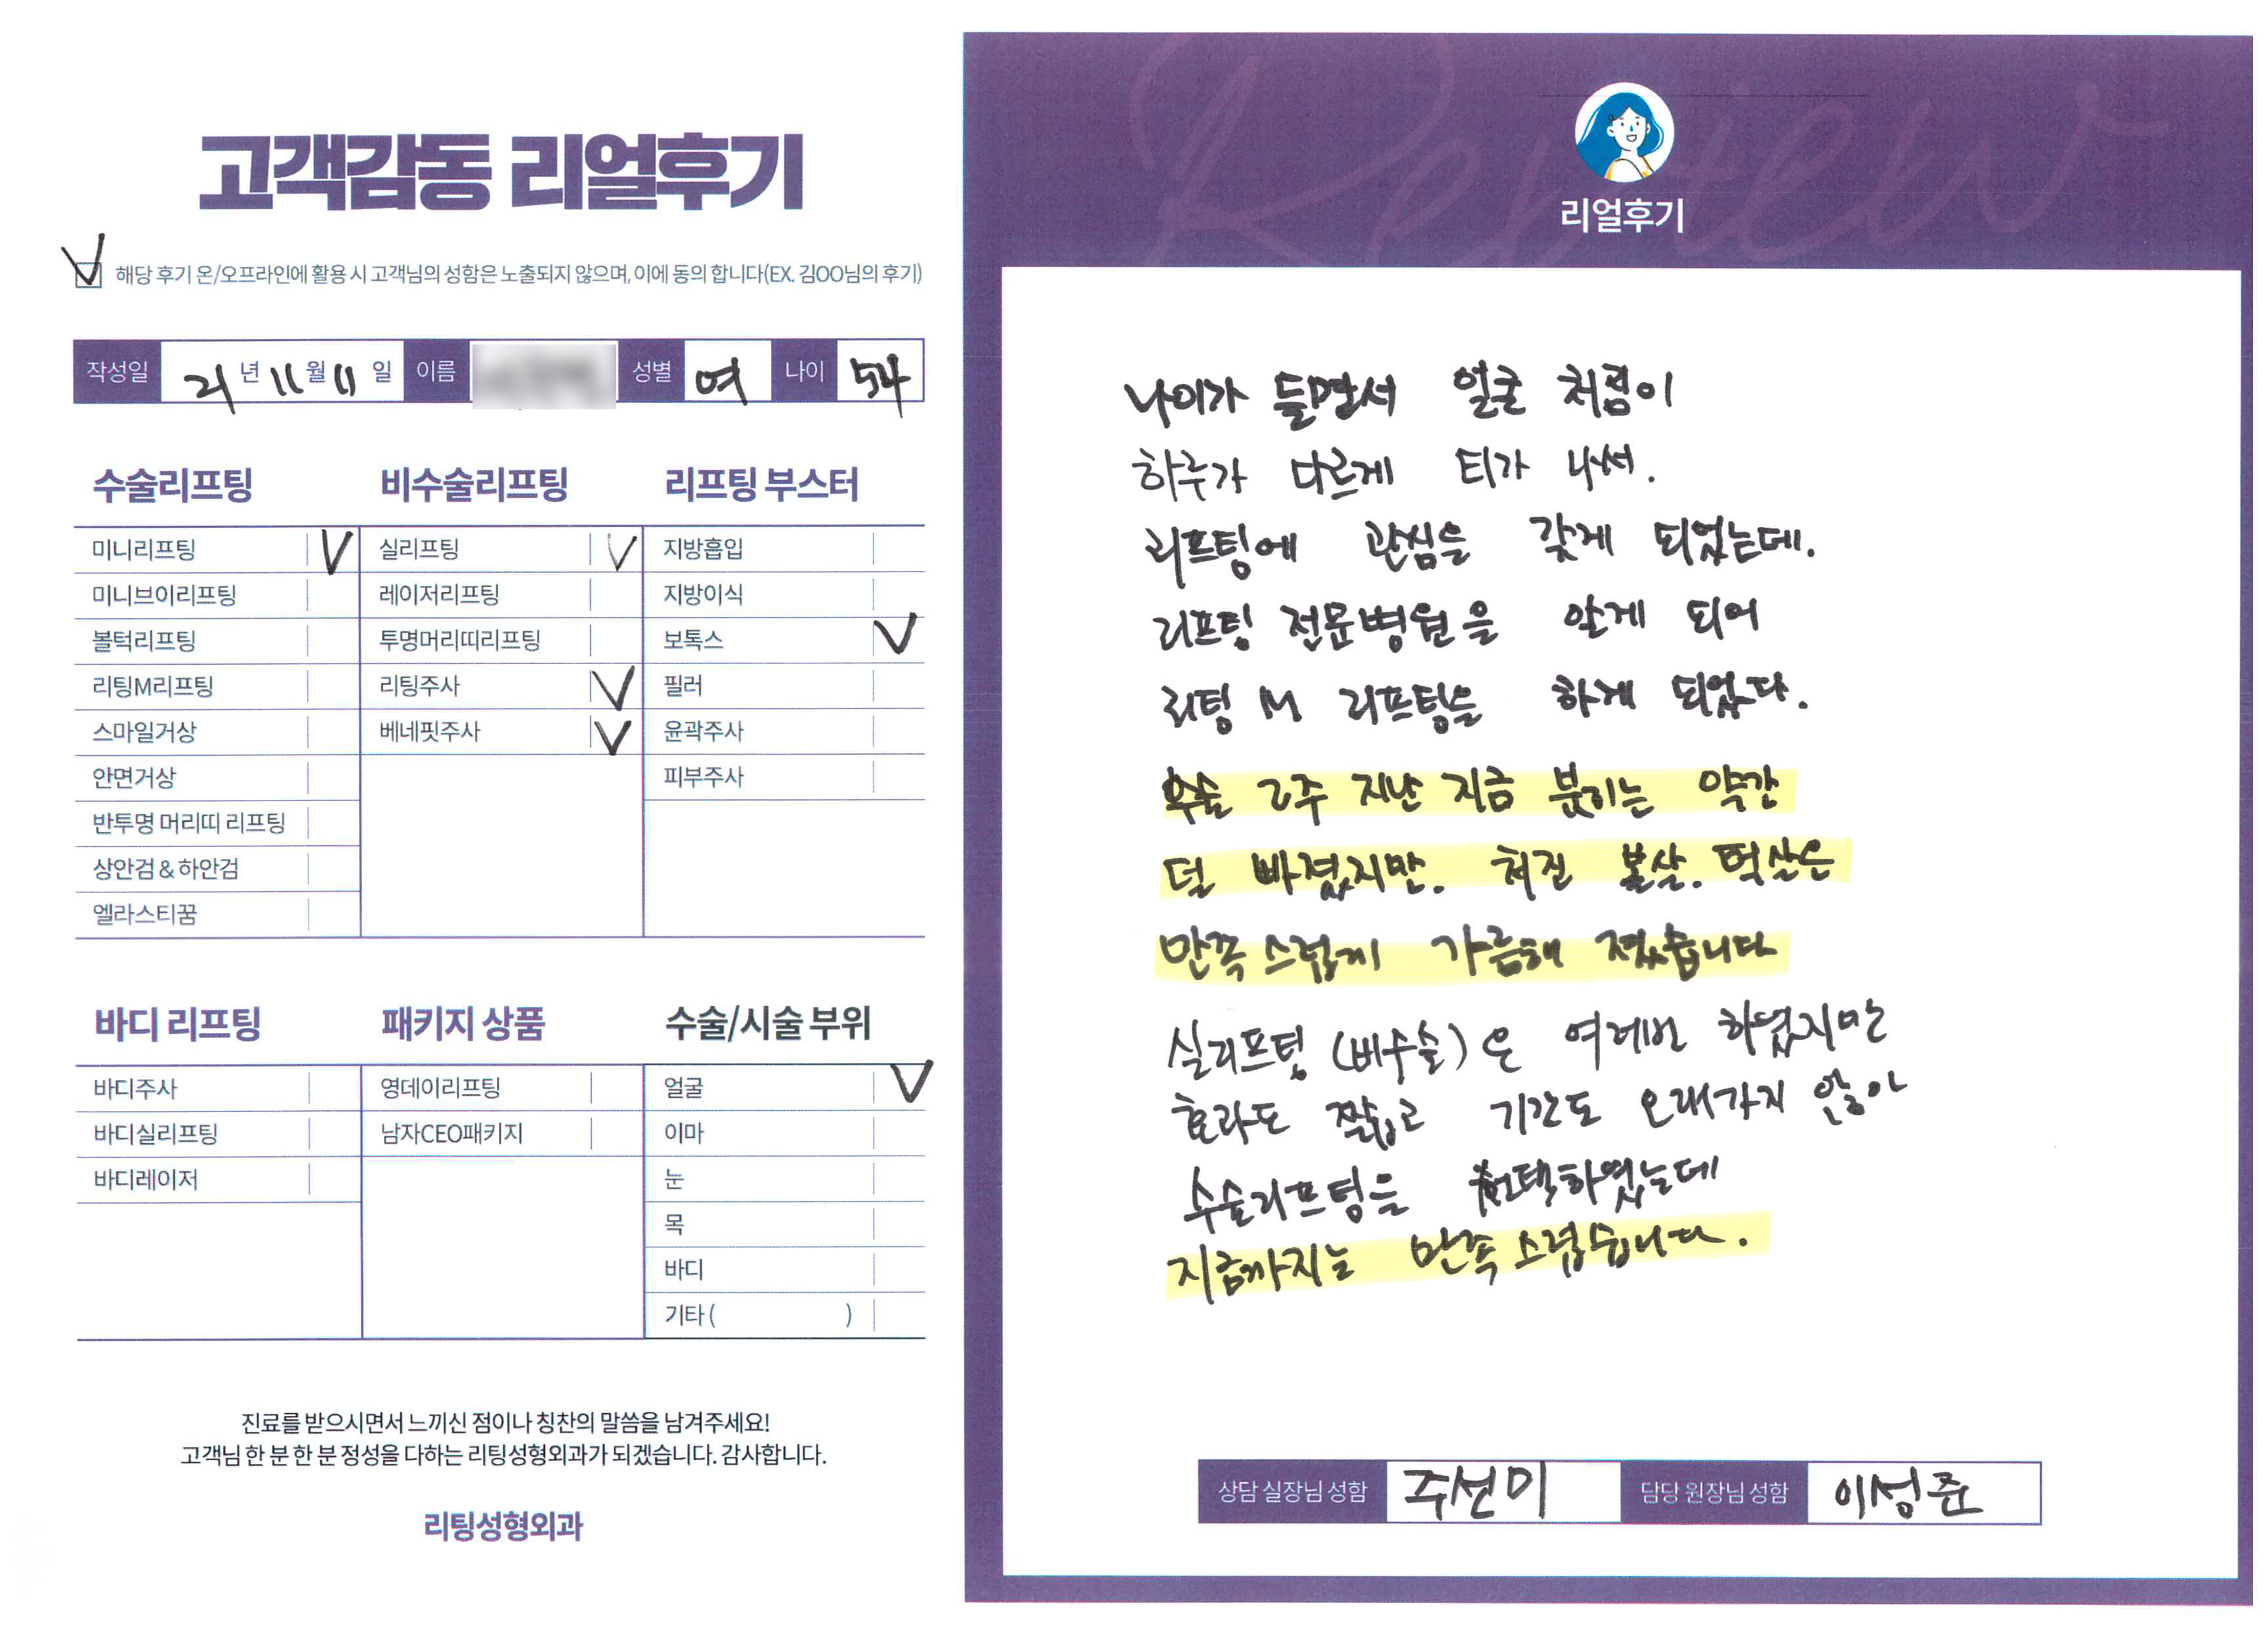 고객감동 리얼후기
해당 후기 온/오프라인에 활용 시 고객님의 성함은 노출되지 않으며, 이에 동의 합니다(EX. 김OO님의 후기)
작성일 21년 11월 11일 이름 성별 여 나이 54
수술리프팅
미니리프팅
미니브이리프팅
볼턱리프팅
리팅M리프팅
스마일거상
안면거상
반투명 머리띠 리프팅
상안검 & 하안검
엘라스티꿈
비수술리프팅
실리프팅
레이저리프팅
투명머리띠리프팅
리팅주사
베네핏주사
리프팅 부스터
지방흡입
지방이식
보톡스
필러
윤곽주사
피부주사
바디 리프팅
바디주사
바디실리프팅
바디레이저
패키지 상품
영데이리프팅
남자CEO패키지
수술/시술 부위
얼굴
이마
눈
목
바디
기타 ( )
진료를 받으시면서 느끼신 점이나 칭찬의 말씀을 남겨주세요!
고객님 한 분 한 분 정성을 다하는 리팅성형외과가 되겠습니다. 감사합니다.
리팅성형외과
Review
리얼후기
나이가 들면서 얼굴 처짐이
하루가 다르게 티가 나써.
리프팅에 관심을 갖게 되었는데.
리프팅 전문병원을 알게 되어
리팅 M 리프팅을 하게 되었다.
수술 2주 지난 지금 붒기는 약간
덜 빠졌지만. 처진 볼살. 턱살은
만족스럽게 갸름해 졌습니다
실리프팅 (비수술)은 여러번 하였지만
효과도 짧고 기간도 오래가지 않아
수술리프팅을 선택하였는데
지금까지는 만족스럽습니다.
상담 실장님 성함 주선미 담당 원장님 성함 이성준